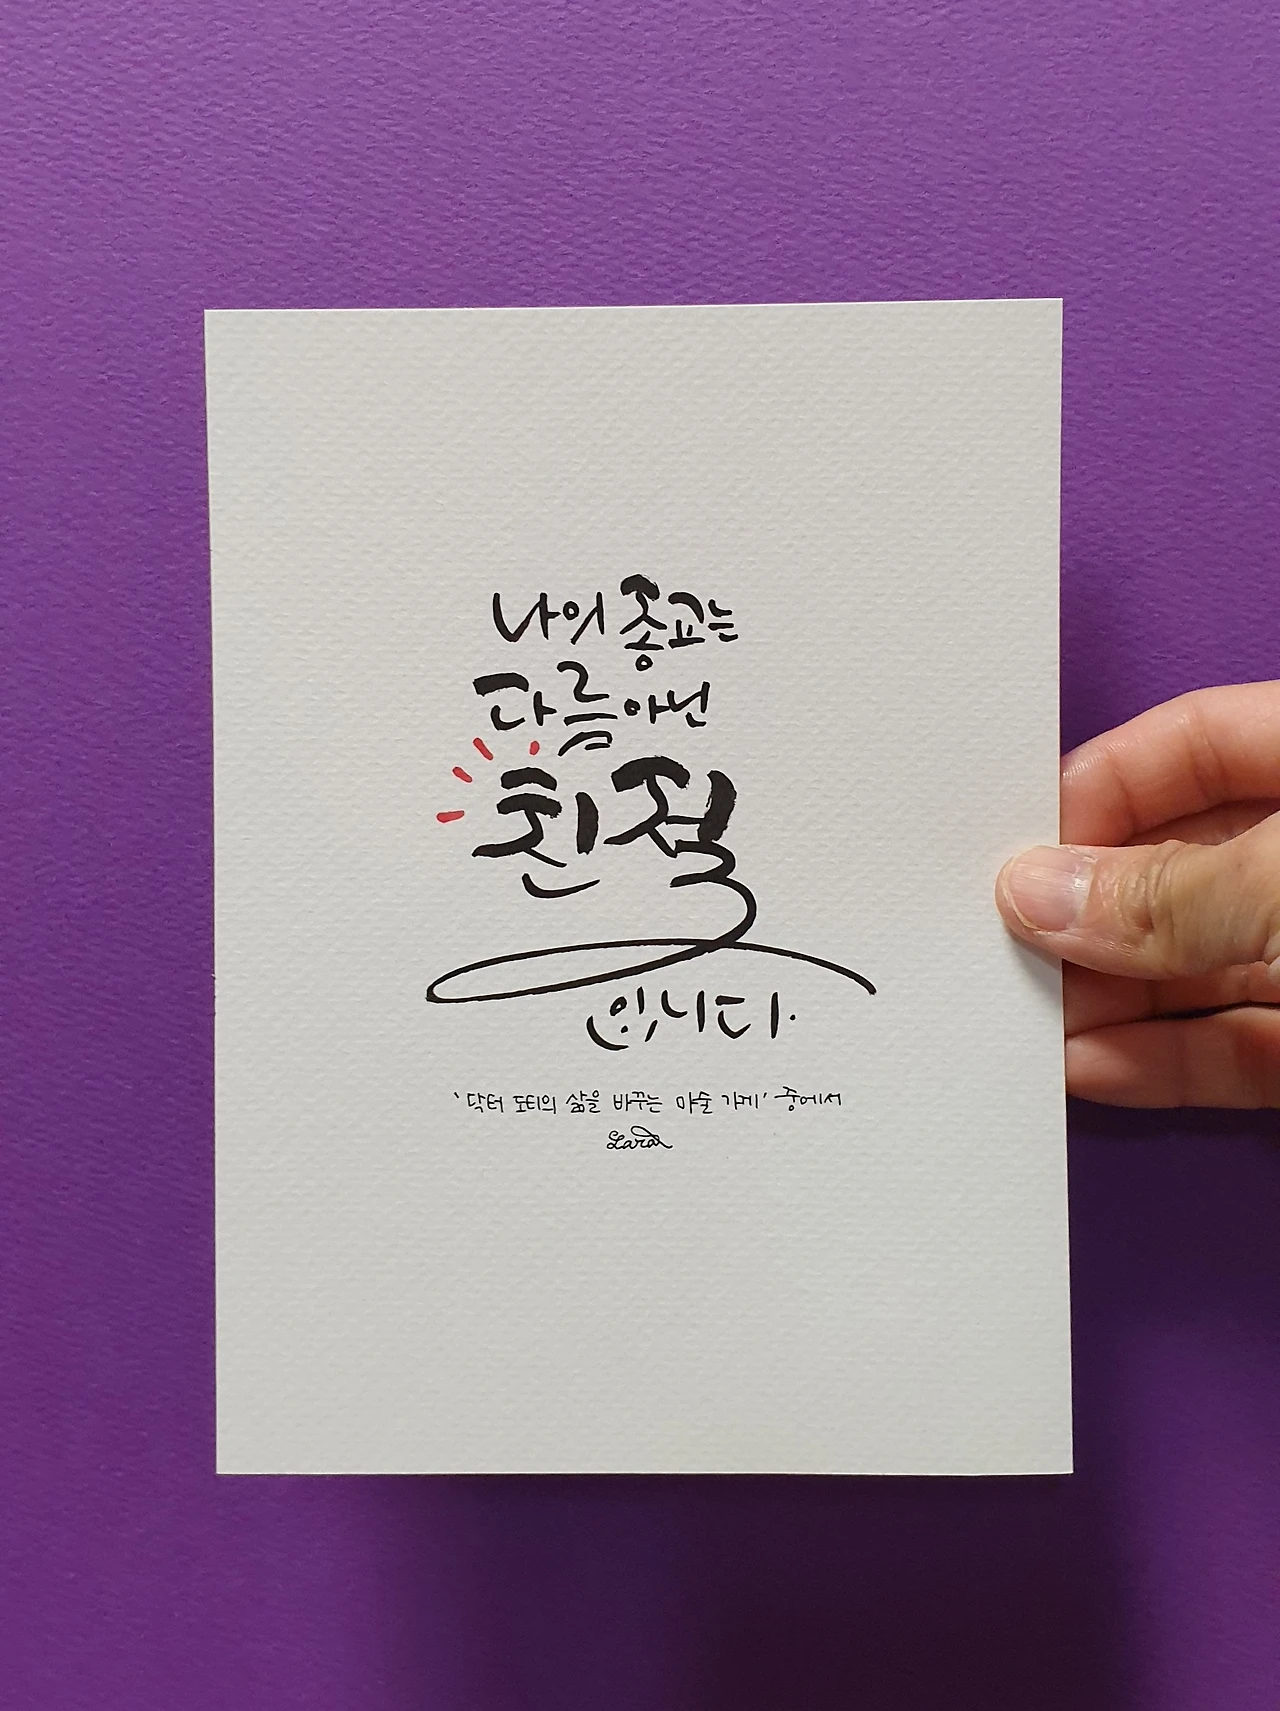 나의 종교는
다름아닌
친절
입니다.
'닥터 도티의 삶을 바꾸는 마술 가게' 중에서
Lara